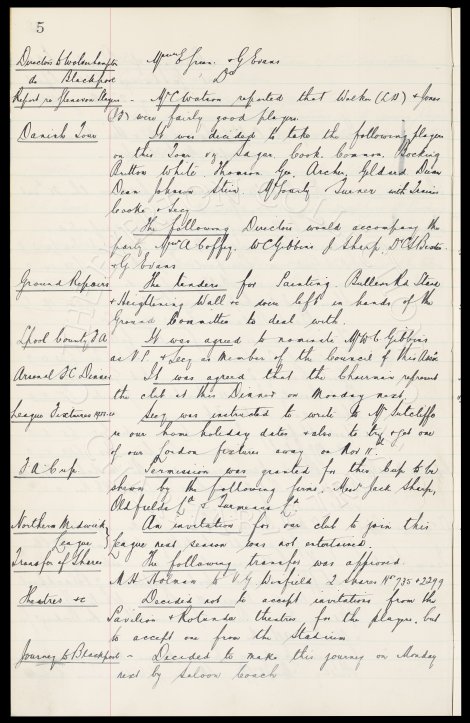 5
Directors to Wolverhampton Messrs E Green & G Evans
do Blackpool Do
Report re Glenavon Players - Mr C Watson reported that Walker (L.H) & Jones
were fairly good players.
Danish Tour It was decided to take the following players
on this Tour viz Sagar, Cook, Common, Cocking
Britton White. Thomson Geo. Archer, Geldard Dunn
Dean Johnson Stein. McGourty Turner with Trainer
Cooke & Secy
The following Directors would accompany the
party Messrs A Coffey, W C Gibbins J Sharp, Dr C S Baxter
& G Evans
Ground Repairs The tenders for Painting. Bullens Rd Stand
& Heightening Wall & were left in hands of the
Ground Committee to deal with.
Lpool County F A It was agreed to nominate Mr W C Gibbins
as V P. & Secy as Member of the Council of this Assn
Arsenal F C Dinner It was agreed that the Chairman represent
the club at this Dinner on Monday next
League Fixtures Secy was instructed to write to Mr Sutcliffe
re our home holiday dates & also to try & get one
of our London fixtures away on Nov 11th
F A Cup. Permission was granted for this Cup to be
shewn by the following firms, Messrs Jack Sharp,
Oldfields Ld & Furmans Ld
Northern Midweek An invitation for our club to join this
League League next season was not entertained.
Transfer of Shares The following transfer was approved.
M. H. Holman to V. G Denfield 2 Shares Nos 735 & 2299
Theatres &c Decided not to accept invitations from the
Pavilion & Rotunda theatres for the players, but
to accept one from the Stadium
Journey to Blackpool - Decided to make this journey on Monday
next by Saloon Coach